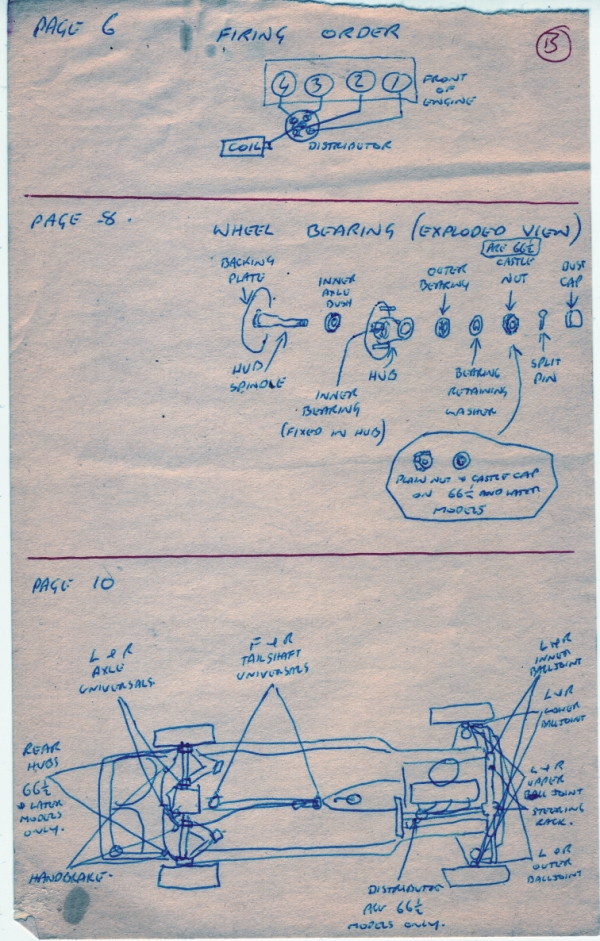 PAGE 6
FIRING ORDER
B
4 3 2 1
FRONT
OF
ENGINE
COIL
DISTRIBUTOR
PAGE 8.
WHEEL BEARING (EXPLODED VIEW)
BACKING
PLATE
INNER
AXLE
BUSH
OUTER
BEARING
PRE 66½
CASTLE
NUT
DUST
CAP
HUB
SPINDLE
INNER
BEARING
(FIXED IN HUB)
HUB
BEARING
RETAINING
WASHER
SPLIT
PIN
PLAIN NUT & CASTLE CAP
ON 66½ AND LATER
MODELS
PAGE 10
L & R
AXLE
UNIVERSALS
F & R
TAILSHAFT
UNIVERSALS
L & R
INNER
BALLJOINT
L & R
LOWER
BALLJOINT
REAR
HUBS
66½
& LATER
MODELS
ONLY.
L & R
UPPER
BALL JOINT
STEERING
RACK.
L & R
OUTER
BALLJOINT
HANDBRAKE.
DISTRIBUTOR
PRE 66½
MODELS ONLY.